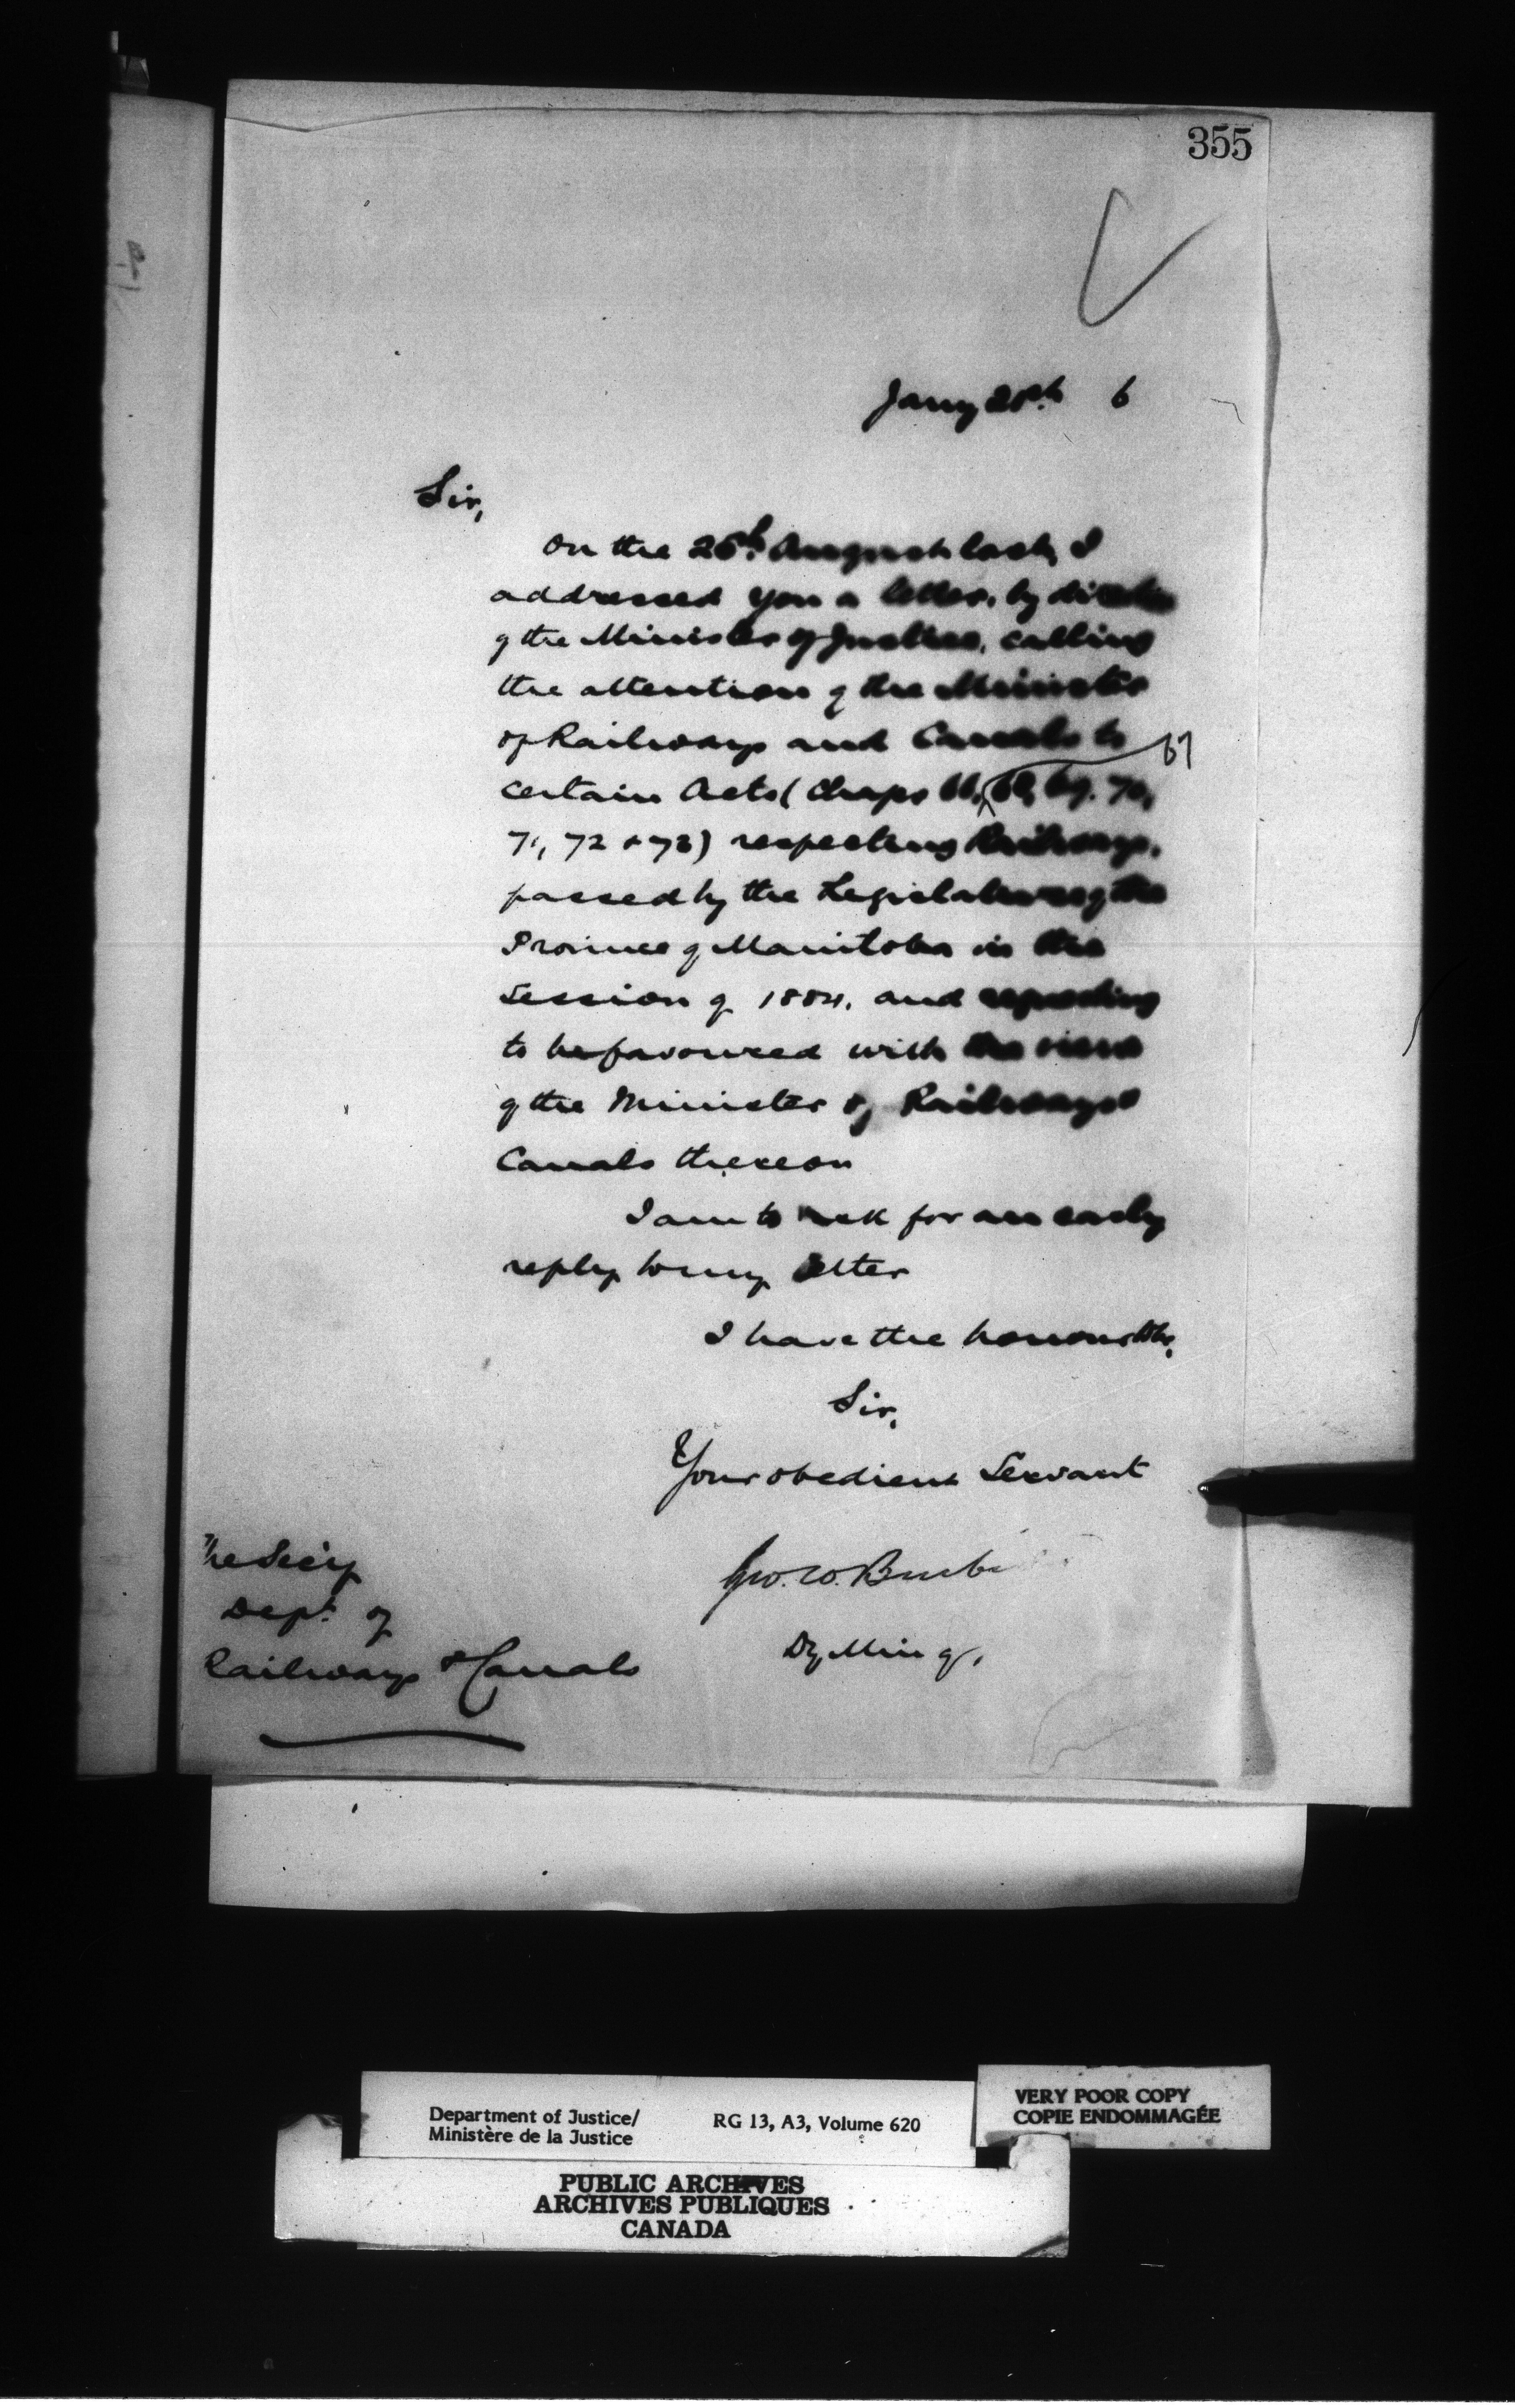 355
Jany 6
Sir,
On the 26th. August last, I
addressed you a letter, by direction
of the Minister of Justice, calling
the attention of the Minister
of Railways and Canals to
67
certain Acts (Chaps 66, 68, 69. 70,
71, 72 & 73) respecting Railways,
passed by the Legislature of the
Province of Manitoba in the
Session of 1884, and requesting
to be favoured with the views
of the Minister of Railways &
Canals thereon
I am to ask for an early
reply to my letter
I have the honour to be,
Sir,
Your obedient Servant
Geo. W. Burbi
Dy Min of,
The Secy
Dept. of
Railways & Canals
Department of Justice/
Ministère de la Justice
RG 13, A3, Volume 620
VERY POOR COPY
COPIE ENDOMMAGÉE
PUBLIC ARCHIVES
ARCHIVES PUBLIQUES
CANADA